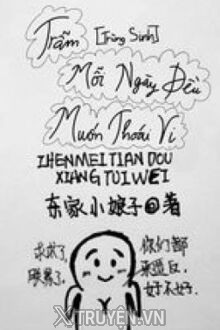 Trẫm [Trùng Sinh]
Mỗi Ngày Đều
Muốn Thoái Vị
ZHENMEITIAN DOU
XIANG TUI WEI
东家小娘子@著
求求了,
朕累了,
你们都
来造反,
好不好.
XTRUYỆN.VN